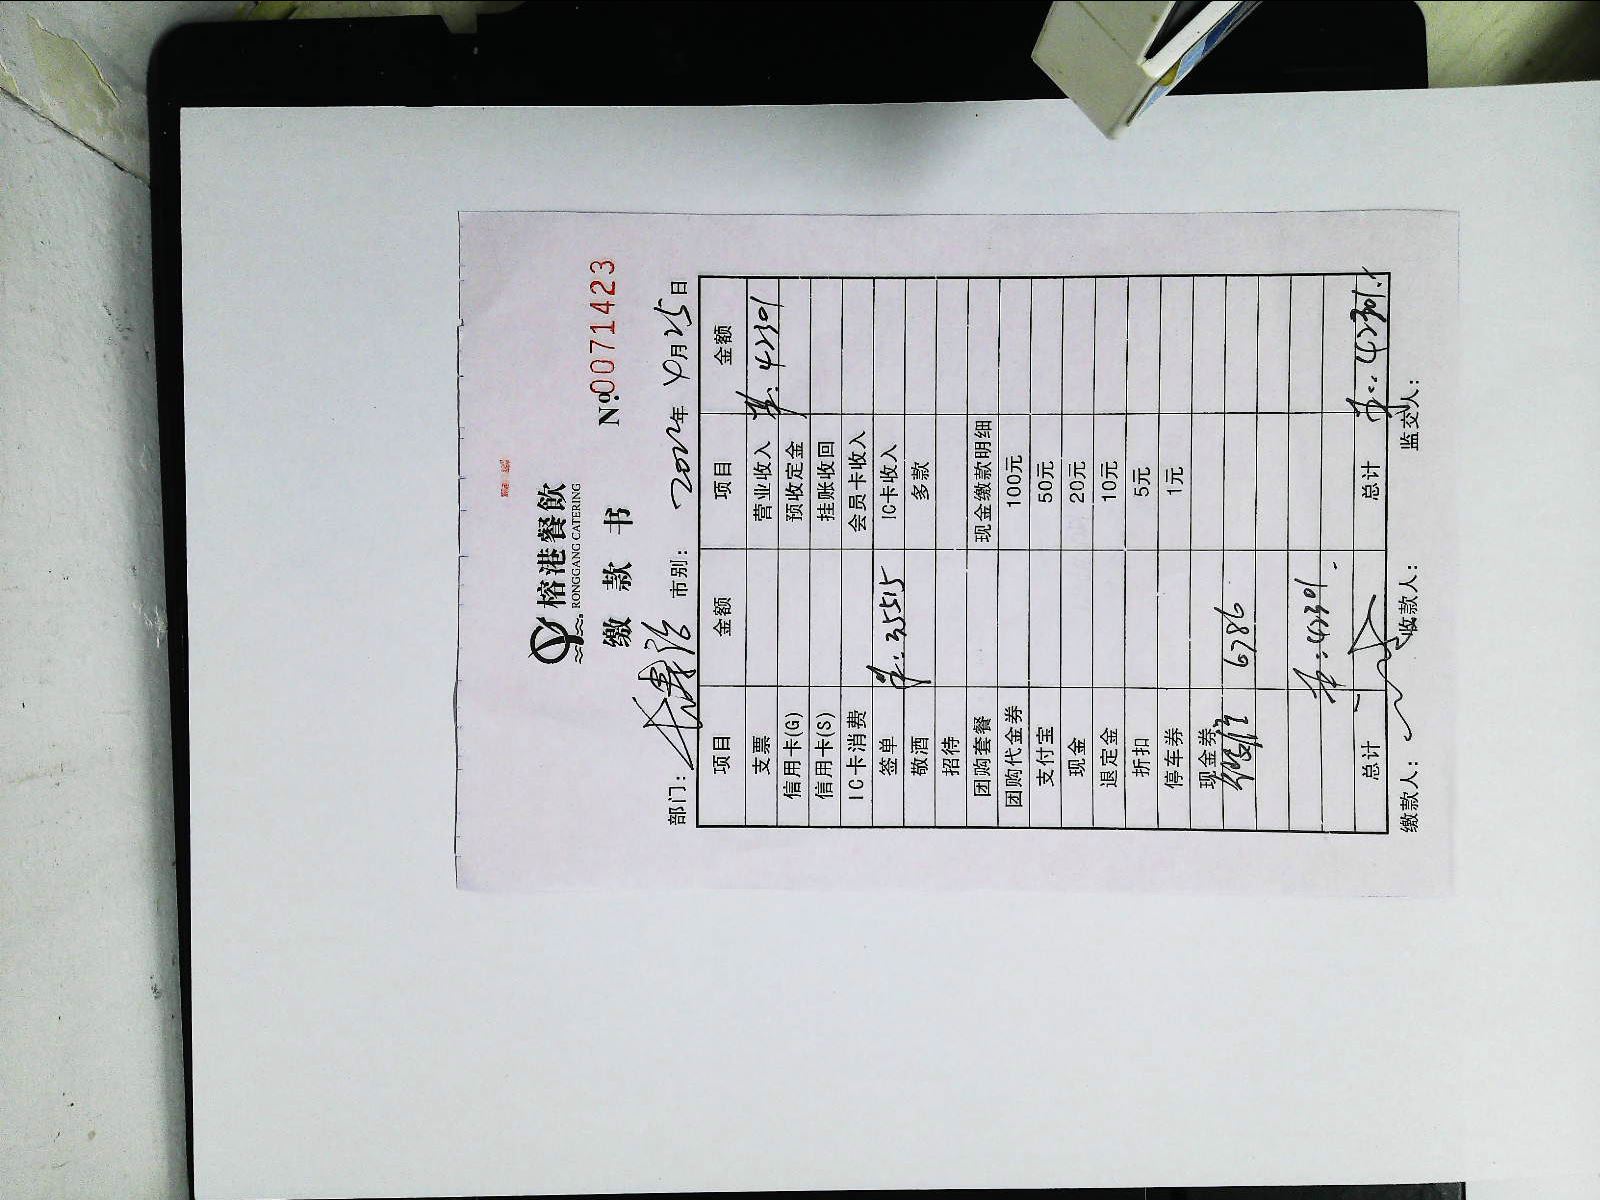 榕港餐飲
RONGGANG CATERING
缴款书
№0071423
部门： 市别： 2022年4月25日
项目 金额 项目 金额
支票 营业收入 42301
信用卡(G) 预收定金
信用卡(S) 挂账收回
IC卡消费 会员卡收入
签单 35515 IC卡收入
敬酒 多款
招待
团购套餐 现金缴款明细
团购代金券 100元
支付宝 50元
现金 20元
退定金 10元
折扣 5元
停车券 1元
现金券
6786
42301.
总计 总计 42301.
缴款人： 收款人： 监交人：